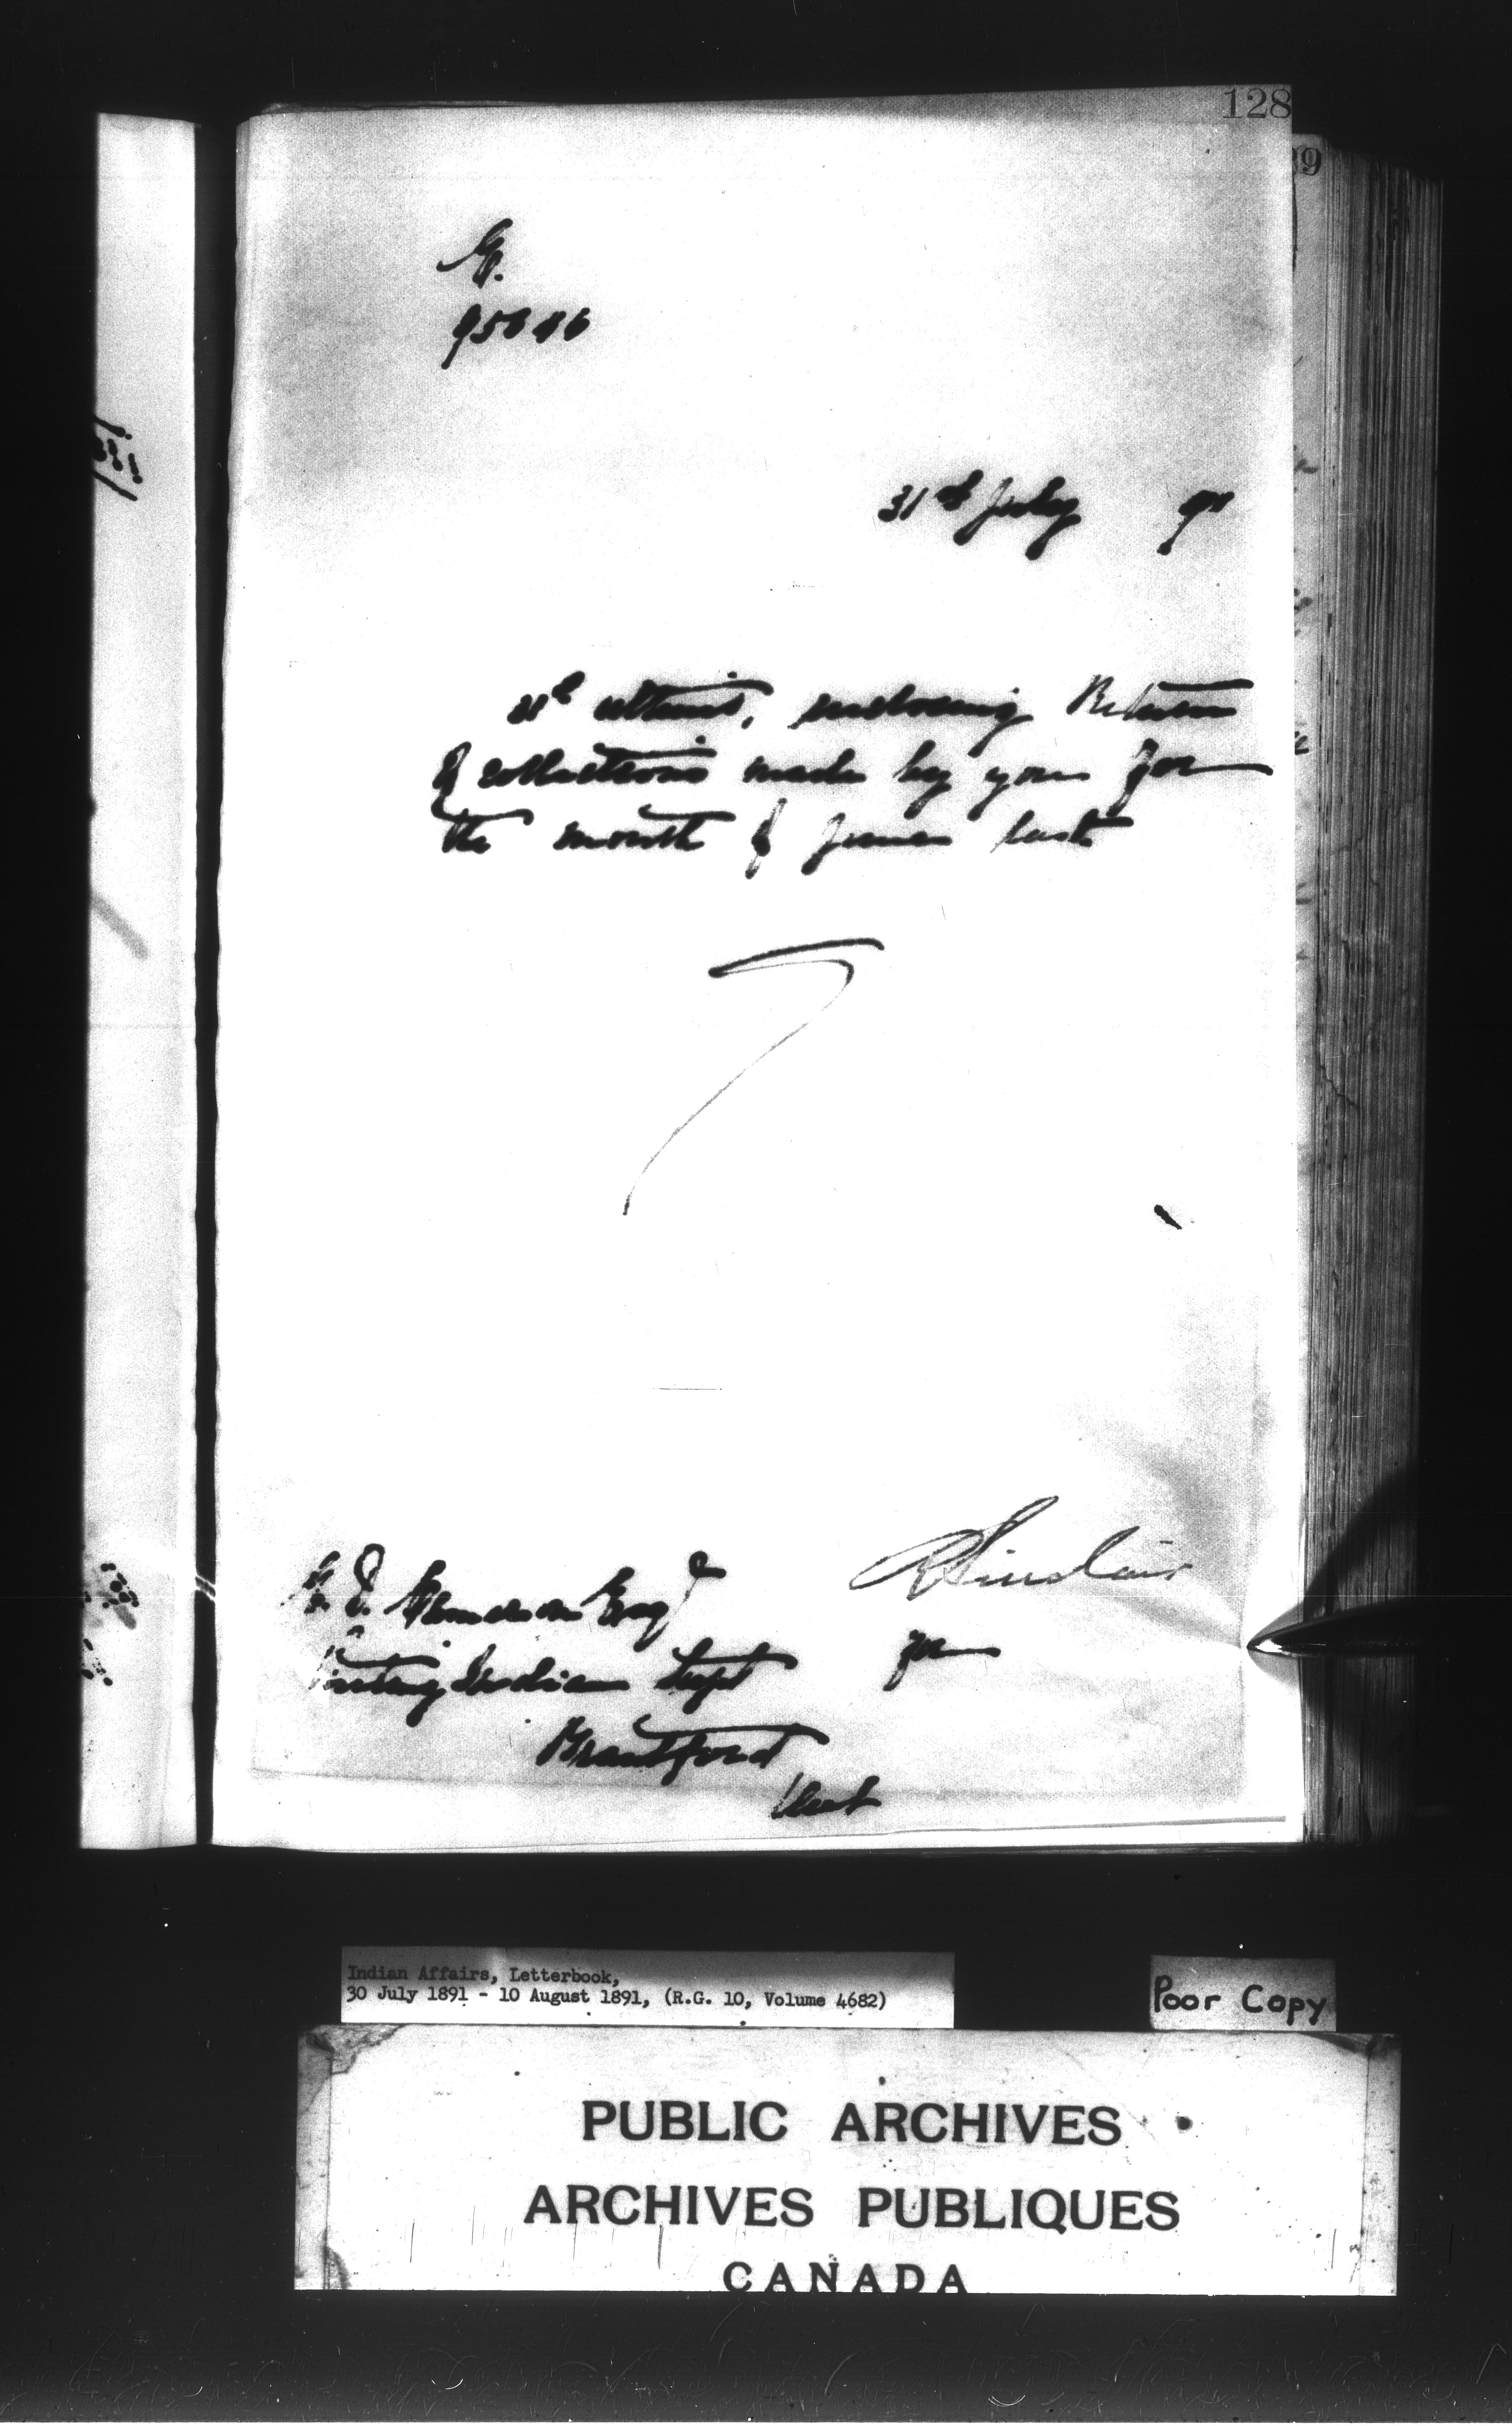 128
95646
31st July 91
ultimo, enclosing Return
of collections made by you for
the month of June last
R Sinclair
E. D. Cameron Esqre
for
Visiting Indian Supt
Brantford
Ont
Indian Affairs, Letterbook,
30 July 1891 - 10 August 1891, (R.G. 10, Volume 4682)
Poor Copy
PUBLIC ARCHIVES
ARCHIVES PUBLIQUES
CANADA